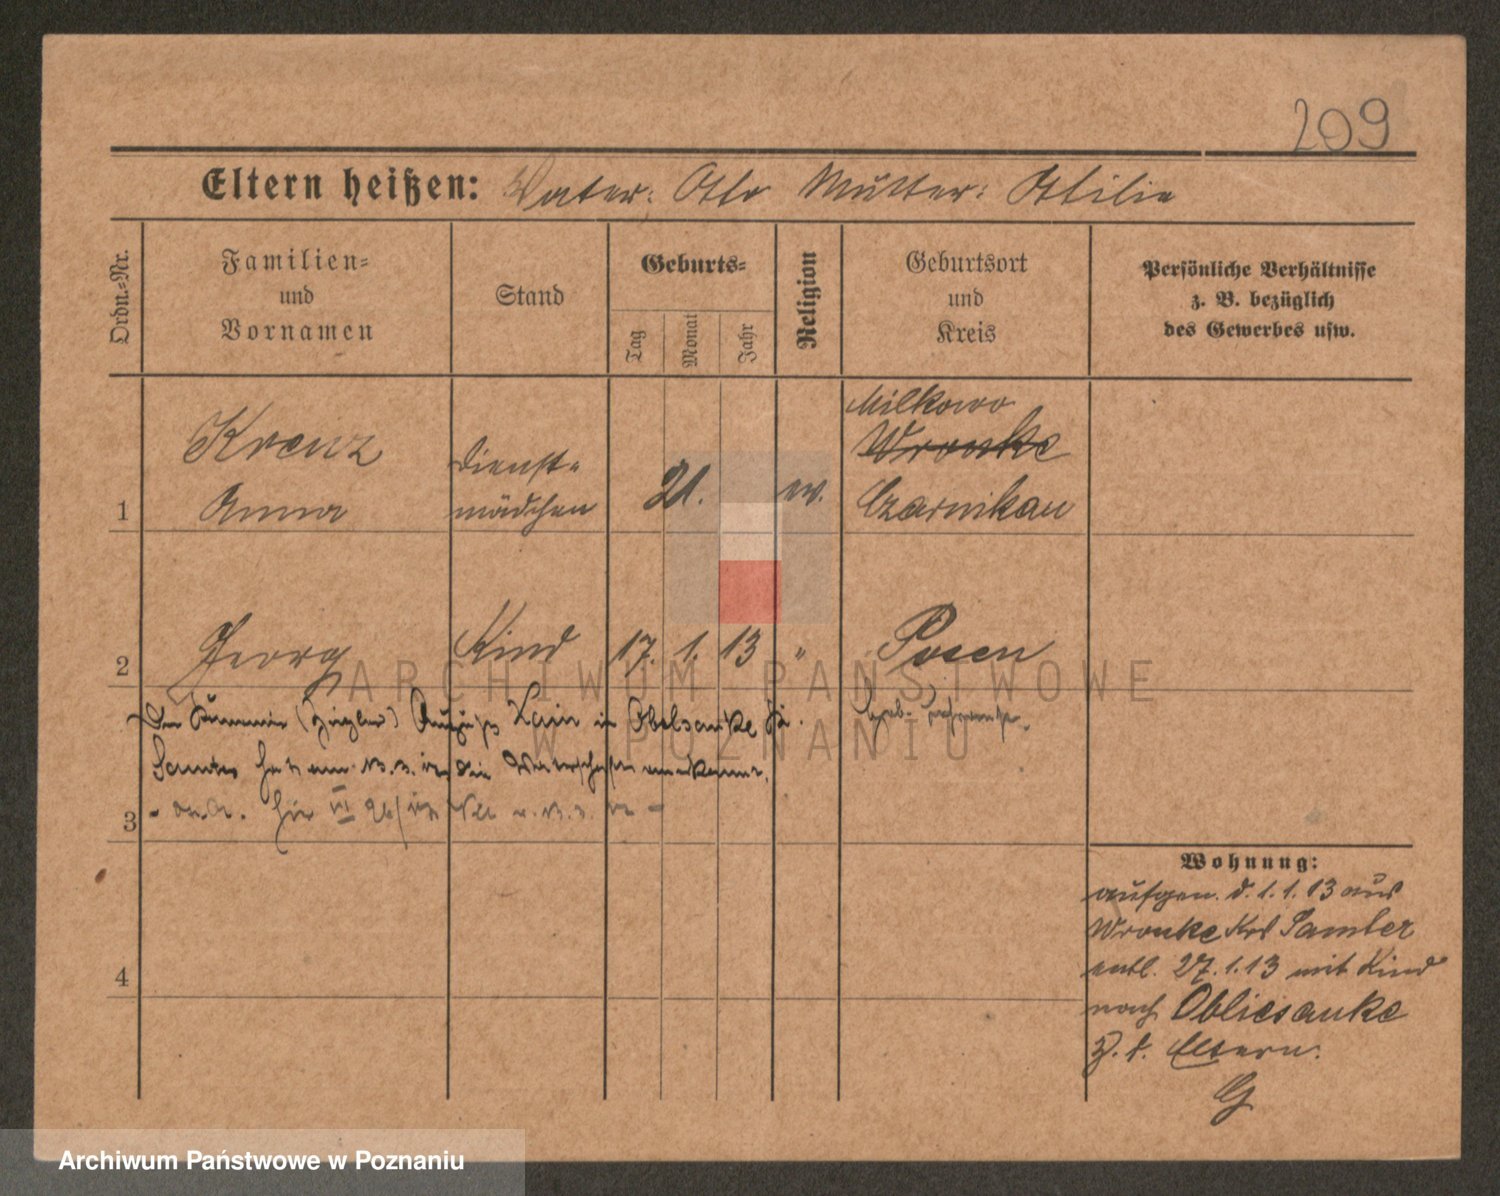 209
Eltern heißen: Vater: Otto Mutter: Ottilie
Ordn.-Nr.
Familien-
und
Vornamen
Stand
Geburts-
Tag
Monat
Jahr
Religion
Geburtsort
und
Kreis
Persönliche Verhältnisse
z. B. bezüglich
des Gewerbes usw.
1
Krenz
Anna
Dienst-
mädchen
21.
ev.
Milkowo
Wronke
Czarnikau
2
Georg
Kind
17. 1. 13
"
Posen
Der (Ziegler) August in Obelsanke
hat am 13. 3. die Vaterschaft anerkannt.
3
4
Wohnung:
aufgen. d. 1. 1. 13 aus
Wronke Krs Samter
entl. 27. 1. 13 mit Kind
nach Obliesanke
z. d. Eltern.
G
ARCHIWUM PAŃSTWOWE
W POZNANIU
Archiwum Państwowe w Poznaniu